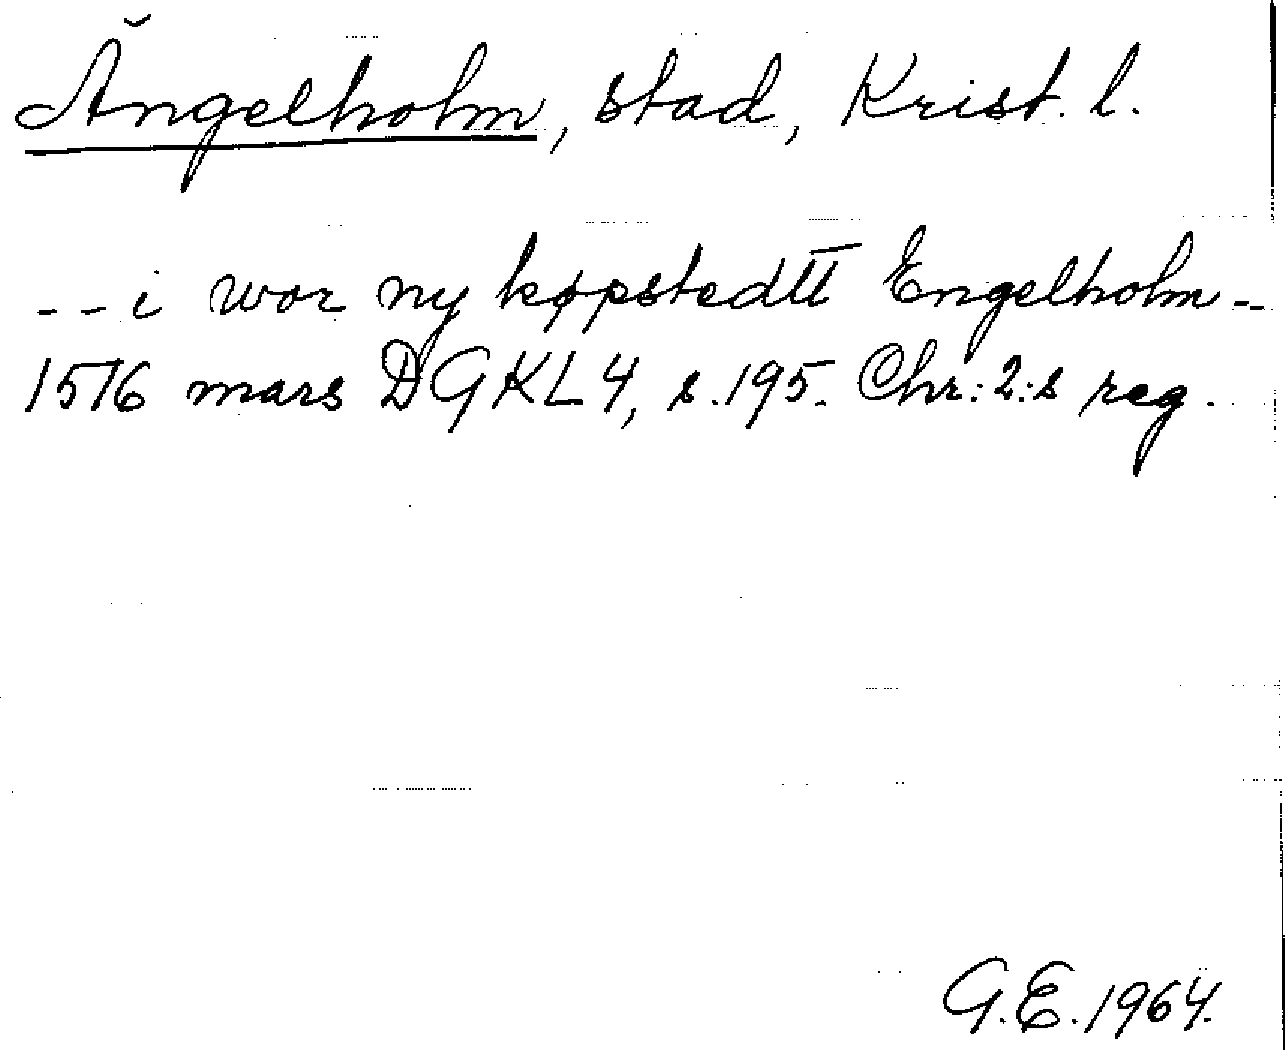 Ängelholm, stad, Krist. l.
-- i wor ny køpstedtt Engelholm --
1516 mars DGKL 4, s. 195. Chr: 2:s reg.
G.E. 1964.